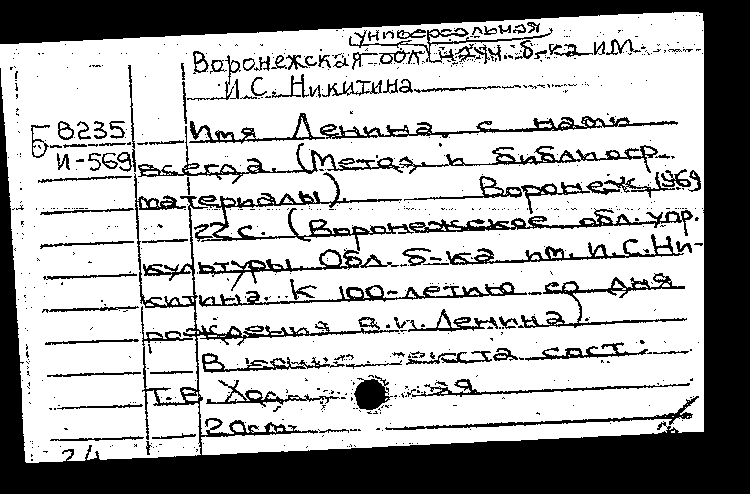 универсальная
Воронежская обл. научн. б-ка им.
И.С. Никитина
Б В235
И-569
Имя Ленина с нами
всегда. (Метод. и библиогр.
материалы). Воронеж, 1969
22с. (Воронежское обл. упр.
культуры. Обл. б-ка им. И.С. Ни-
китина. К 100-летию со дня
рождения В.И. Ленина).
В конце текста сост.:
Т.В.
20см.
24